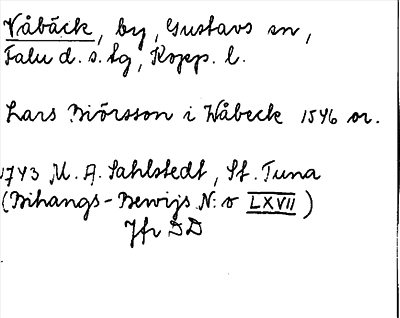 Våbäck, by, Gustavs sn,
Falu d. s. lg, Kopp. l.
Lars Biörsson i Wåbeck 1546 or.
1743 M. A. Sahlstedt, St. Tuna
(Bihangs-Bewijs N:o LXVII)
Jfr DD